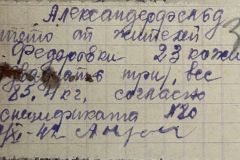 Александрофельд
от жителей
Федоровки 23 кожи
двадцать три/, вес
85,4 кг, согласно
спецификата №20